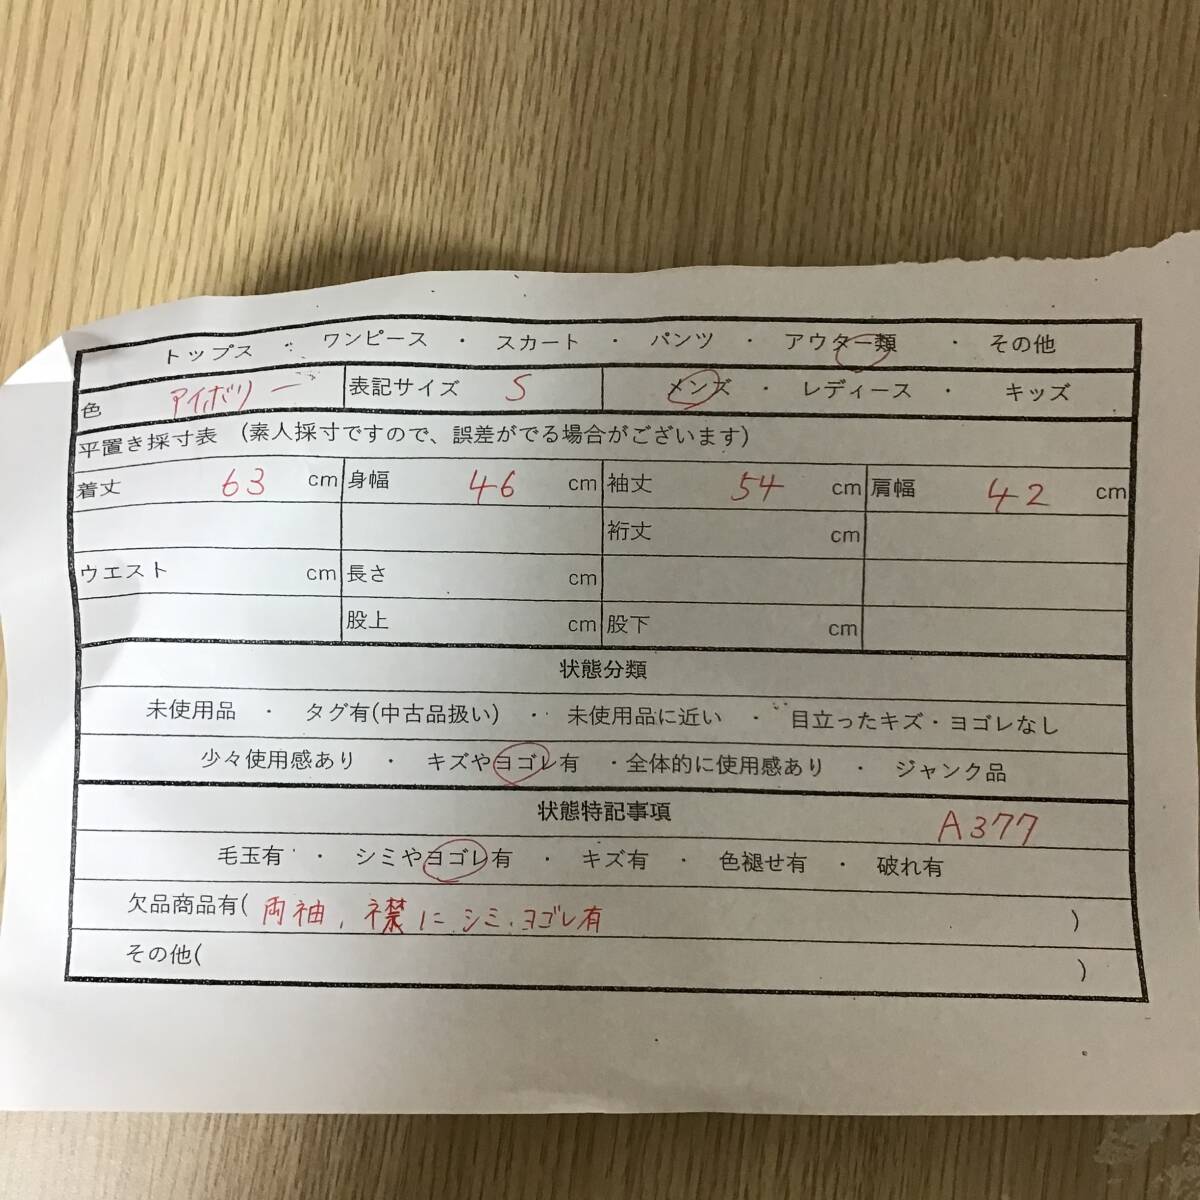 トップス ・ ワンピース ・ スカート ・ パンツ ・ アウター類 ・ その他
色 アイボリー 表記サイズ S メンズ ・ レディース ・ キッズ
平置き採寸表 (素人採寸ですので、誤差がでる場合がございます)
着丈 63 cm 身幅 46 cm 袖丈 54 cm 肩幅 42 cm
裄丈 cm
ウエスト cm 長さ cm
股上 cm 股下 cm
状態分類
未使用品 ・ タグ有(中古品扱い) ・ 未使用品に近い ・ 目立ったキズ・ヨゴレなし
少々使用感あり ・ キズやヨゴレ有 ・全体的に使用感あり ・ ジャンク品
状態特記事項 A377
毛玉有 ・ シミやヨゴレ有 ・ キズ有 ・ 色褪せ有 ・ 破れ有
欠品商品有( 両袖, 襟に シミ.ヨゴレ有 )
その他( )